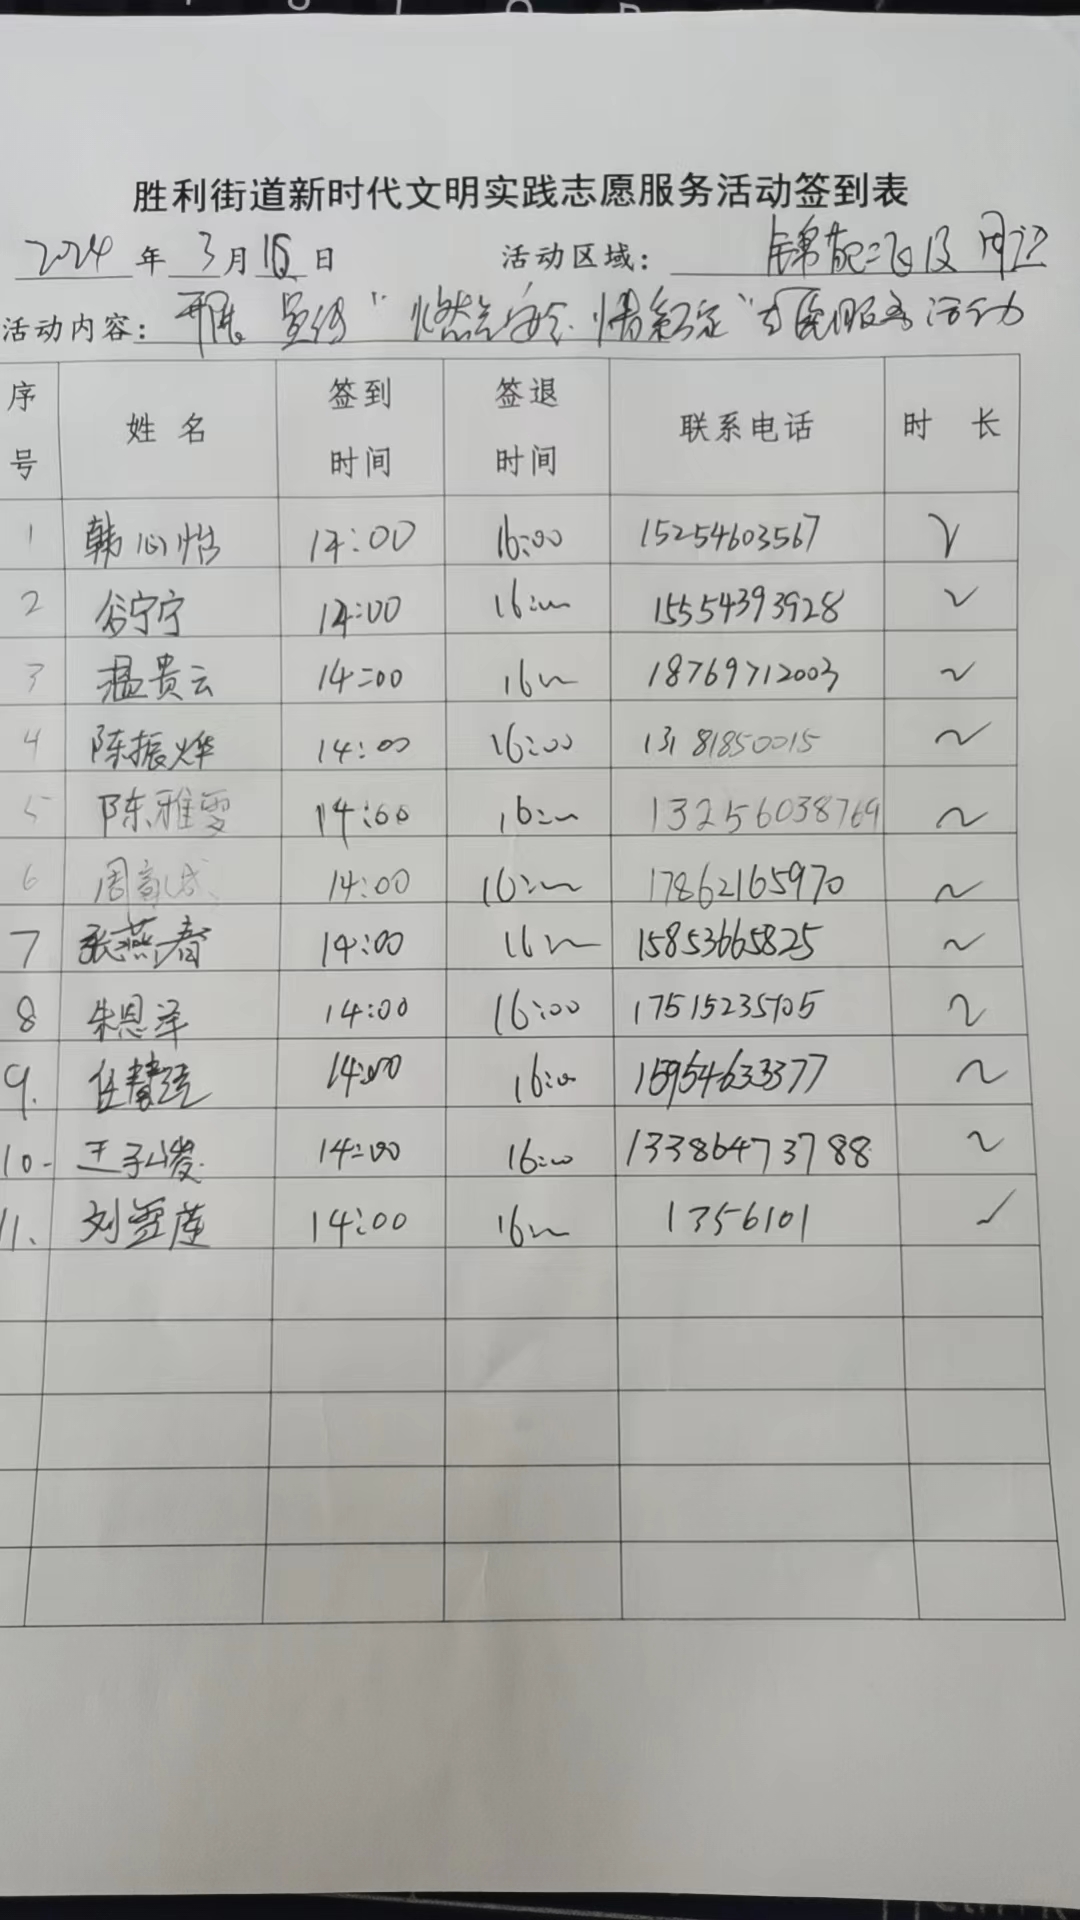 胜利街道新时代文明实践志愿服务活动签到表
2024 年 3 月 日 活动区域: 锦苑二区及周边
活动内容: 开展宣传“燃气安全 情系万家”志愿服务活动
序号 姓名 签到时间 签退时间 联系电话 时长
1 韩心怡 14:00 16:00 15254603567 √
2 谷宁宁 14:00 16:00 15554393928 √
3 温贵云 14:00 16 18769712003
4 陈振烨 14:00 16:00 13181850015
5 陈雅雯 14:00 16:00 13256038769
6 周 14:00 16:00 17862165970
7 张燕春 14:00 16 15853665825
8 朱恩泽 14:00 16:00 17515235705
9. 任慧 14:00 16:00 15954633377
10. 王子峻 14:00 16:00 13386473788
11. 刘莲 14:00 16 1356101 √